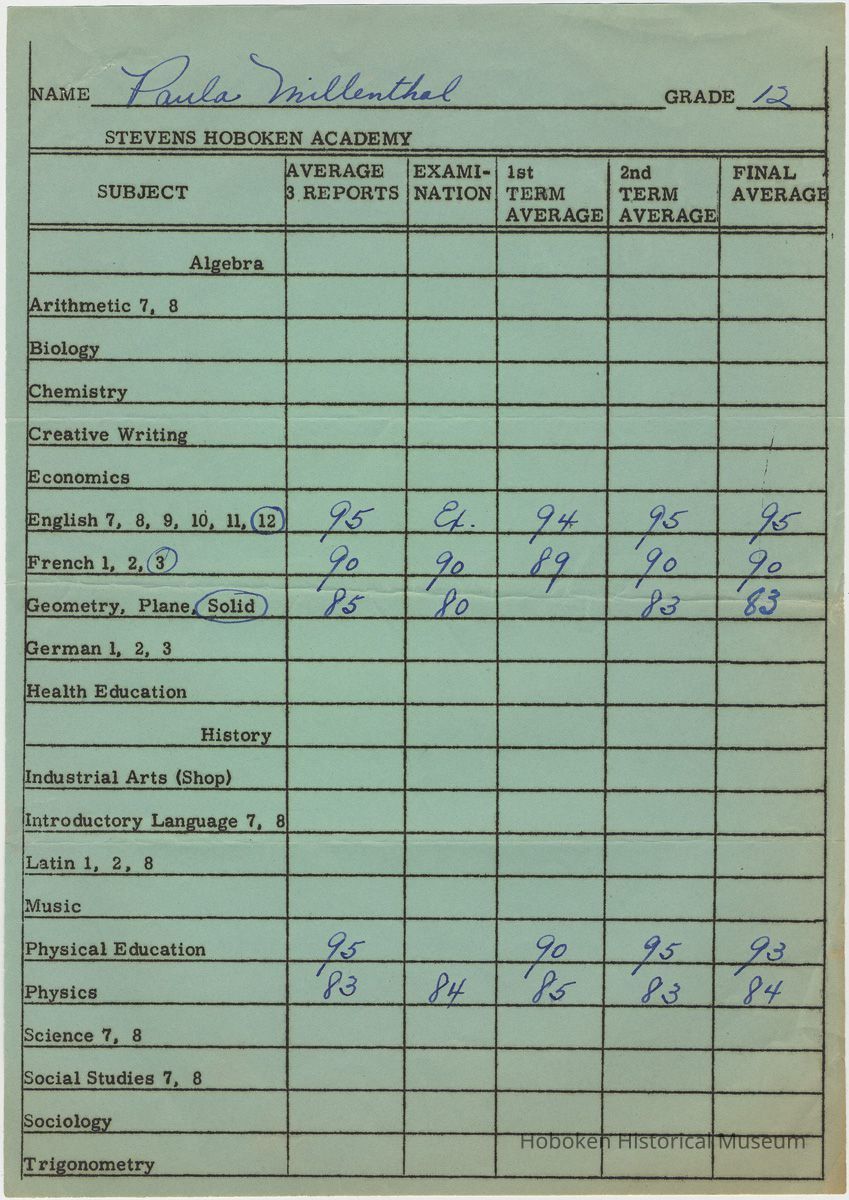 NAME Paula Millenthal GRADE 12
STEVENS HOBOKEN ACADEMY
SUBJECT AVERAGE 3 REPORTS EXAMI-NATION 1st TERM AVERAGE 2nd TERM AVERAGE FINAL AVERAGE
Algebra
Arithmetic 7, 8
Biology
Chemistry
Creative Writing
Economics
English 7, 8, 9, 10, 11, 12 95 Ex. 94 95 95
French 1, 2, 3 90 90 89 90 90
Geometry, Plane, Solid 85 80 83 83
German 1, 2, 3
Health Education
History
Industrial Arts (Shop)
Introductory Language 7, 8
Latin 1, 2, 8
Music
Physical Education 95 90 95 93
Physics 83 84 85 83 84
Science 7, 8
Social Studies 7, 8
Sociology
Hoboken Historical Museum
Trigonometry